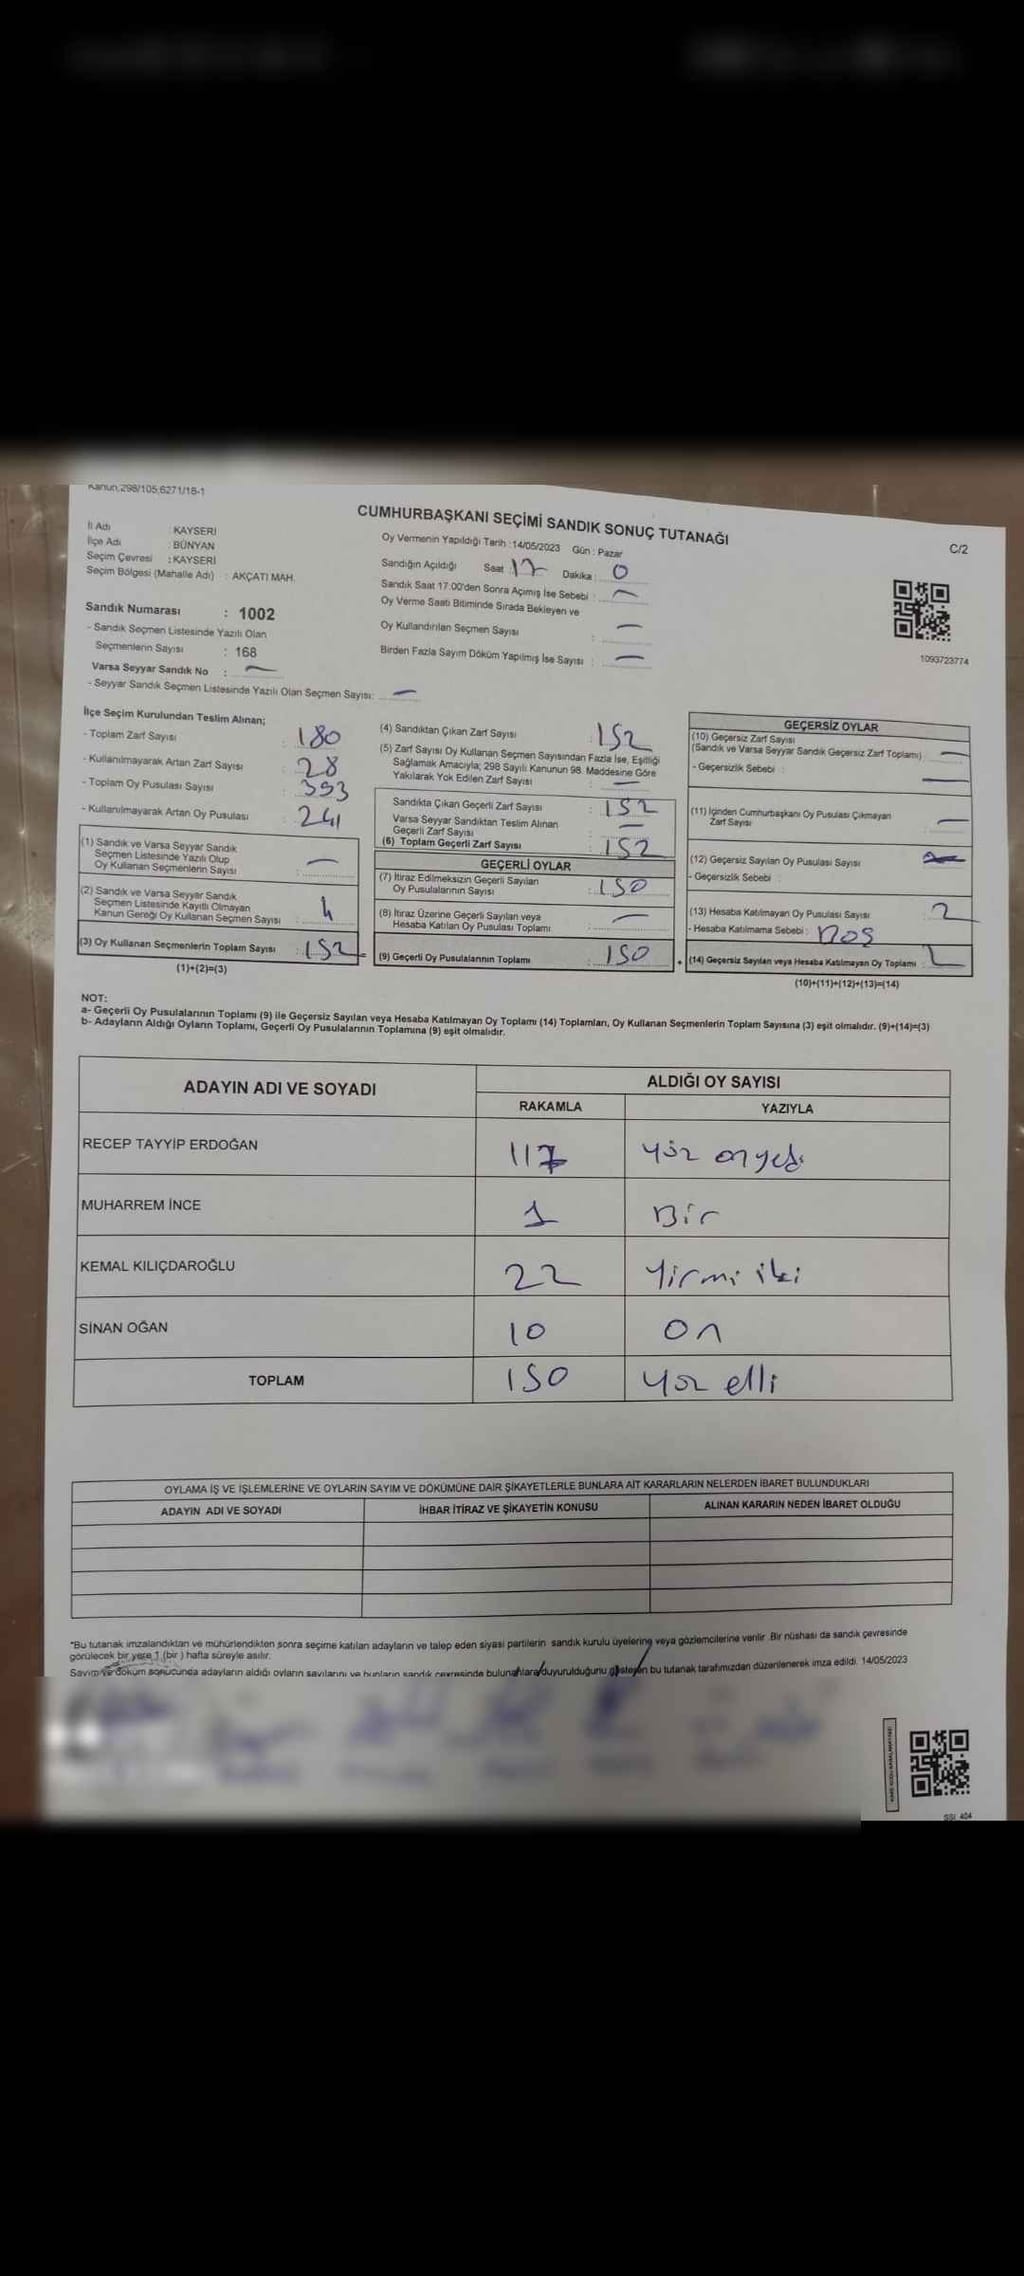 Kanun;298/105;6271/18-1
CUMHURBAŞKANI SEÇİMİ SANDIK SONUÇ TUTANAĞI
C/2
İl Adı : KAYSERİ
İlçe Adı : BÜNYAN
Seçim Çevresi : KAYSERİ
Seçim Bölgesi (Mahalle Adı) : AKÇATI MAH.
Sandık Numarası : 1002
- Sandık Seçmen Listesinde Yazılı Olan
Seçmenlerin Sayısı : 168
Varsa Seyyar Sandık No : —
- Seyyar Sandık Seçmen Listesinde Yazılı Olan Seçmen Sayısı: —
Oy Vermenin Yapıldığı Tarih :14/05/2023 Gün : Pazar
Sandığın Açıldığı Saat 17 Dakika : 0
Sandık Saat 17:00'den Sonra Açımış İse Sebebi : —
Oy Verme Saati Bitiminde Sırada Bekleyen ve
Oy Kullandırılan Seçmen Sayısı : —
Birden Fazla Sayım Döküm Yapılmış İse Sayısı : —
1093723774
İlçe Seçim Kurulundan Teslim Alınan;
- Toplam Zarf Sayısı : 180
- Kullanılmayarak Artan Zarf Sayısı : 28
- Toplam Oy Pusulası Sayısı : 393
- Kullanılmayarak Artan Oy Pusulası : 241
(1) Sandık ve Varsa Seyyar Sandık
Seçmen Listesinde Yazılı Olup
Oy Kullanan Seçmenlerin Sayısı : —
(2) Sandık ve Varsa Seyyar Sandık
Seçmen Listesinde Kayıtlı Olmayan
Kanun Gereği Oy Kullanan Seçmen Sayısı : 4
(3) Oy Kullanan Seçmenlerin Toplam Sayısı : 152
(1)+(2)=(3)
(4) Sandıktan Çıkan Zarf Sayısı : 152
(5) Zarf Sayısı Oy Kullanan Seçmen Sayısından Fazla İse, Eşitliği
Sağlamak Amacıyla; 298 Sayılı Kanunun 98. Maddesine Göre
Yakılarak Yok Edilen Zarf Sayısı : —
Sandıkta Çıkan Geçerli Zarf Sayısı : 152
Varsa Seyyar Sandıktan Teslim Alınan
Geçerli Zarf Sayısı : —
(6) Toplam Geçerli Zarf Sayısı : 152
GEÇERLİ OYLAR
(7) İtiraz Edilmeksizin Geçerli Sayılan
Oy Pusulalarının Sayısı : 150
(8) İtiraz Üzerine Geçerli Sayılan veya
Hesaba Katılan Oy Pusulası Toplamı : —
(9) Geçerli Oy Pusulalarının Toplamı : 150
GEÇERSİZ OYLAR
(10) Geçersiz Zarf Sayısı
(Sandık ve Varsa Seyyar Sandık Geçersiz Zarf Toplamı) : —
- Geçersizlik Sebebi : —
(11) İçinden Cumhurbaşkanı Oy Pusulası Çıkmayan
Zarf Sayısı : —
(12) Geçersiz Sayılan Oy Pusulası Sayısı
- Geçersizlik Sebebi :
(13) Hesaba Katılmayan Oy Pusulası Sayısı : 2
- Hesaba Katılmama Sebebi : BOŞ
+ (14) Geçersiz Sayılan veya Hesaba Katılmayan Oy Toplamı : 2
(10)+(11)+(12)+(13)=(14)
NOT:
a- Geçerli Oy Pusulalarının Toplamı (9) ile Geçersiz Sayılan veya Hesaba Katılmayan Oy Toplamı (14) Toplamları, Oy Kullanan Seçmenlerin Toplam Sayısına (3) eşit olmalıdır. (9)+(14)=(3)
b- Adayların Aldığı Oyların Toplamı, Geçerli Oy Pusulalarının Toplamına (9) eşit olmalıdır.
ADAYIN ADI VE SOYADI
ALDIĞI OY SAYISI
RAKAMLA YAZIYLA
RECEP TAYYİP ERDOĞAN 117 yüz onyedi
MUHARREM İNCE 1 Bir
KEMAL KILIÇDAROĞLU 22 Yirmi iki
SİNAN OĞAN 10 On
TOPLAM 150 Yüz elli
OYLAMA İŞ VE İŞLEMLERİNE VE OYLARIN SAYIM VE DÖKÜMÜNE DAİR ŞİKAYETLERLE BUNLARA AİT KARARLARIN NELERDEN İBARET BULUNDUKLARI
ADAYIN ADI VE SOYADI İHBAR İTİRAZ VE ŞİKAYETİN KONUSU ALINAN KARARIN NEDEN İBARET OLDUĞU
*Bu tutanak imzalandıktan ve mühürlendikten sonra seçime katılan adayların ve talep eden siyasi partilerin sandık kurulu üyelerine veya gözlemcilerine verilir. Bir nüshası da sandık çevresinde
görülecek bir yere 1 (bir ) hafta süreyle asılır.
Sayım ve döküm sonucunda adayların aldığı oyların sayılarını ve bunların sandık çevresinde bulunanlara duyurulduğunu gösteren bu tutanak tarafımızdan düzenlenerek imza edildi. 14/05/2023
SSI 404